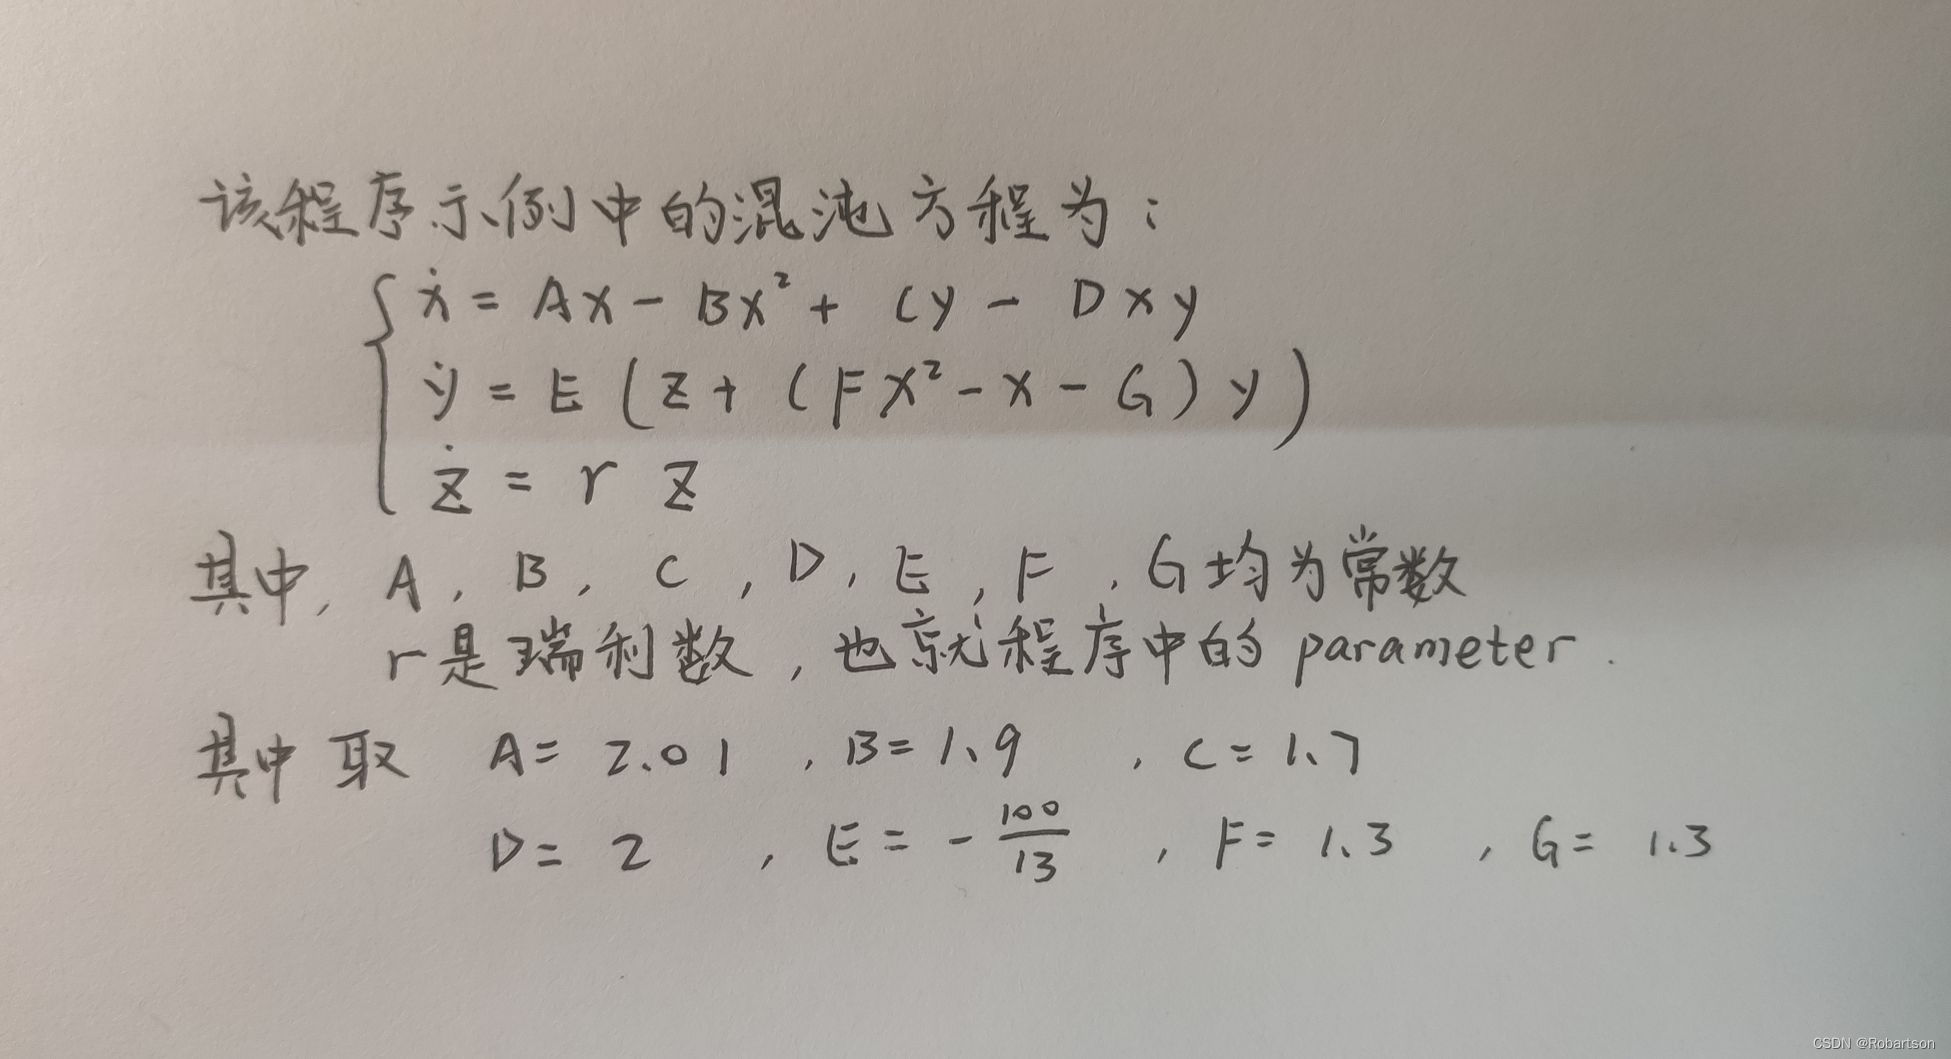 该程序示例中的混沌方程为:
ẋ = Ax - Bx² + Cy - Dxy
ẏ = E (z + (Fx² - x - G) y)
ż = r z
其中, A, B, C, D, E, F, G均为常数
r是瑞利数, 也就程序中的 parameter.
其中取 A = 2.01, B = 1.9, C = 1.7
D = 2, E = -100/13, F = 1.3, G = 1.3
CSDN @Robartson